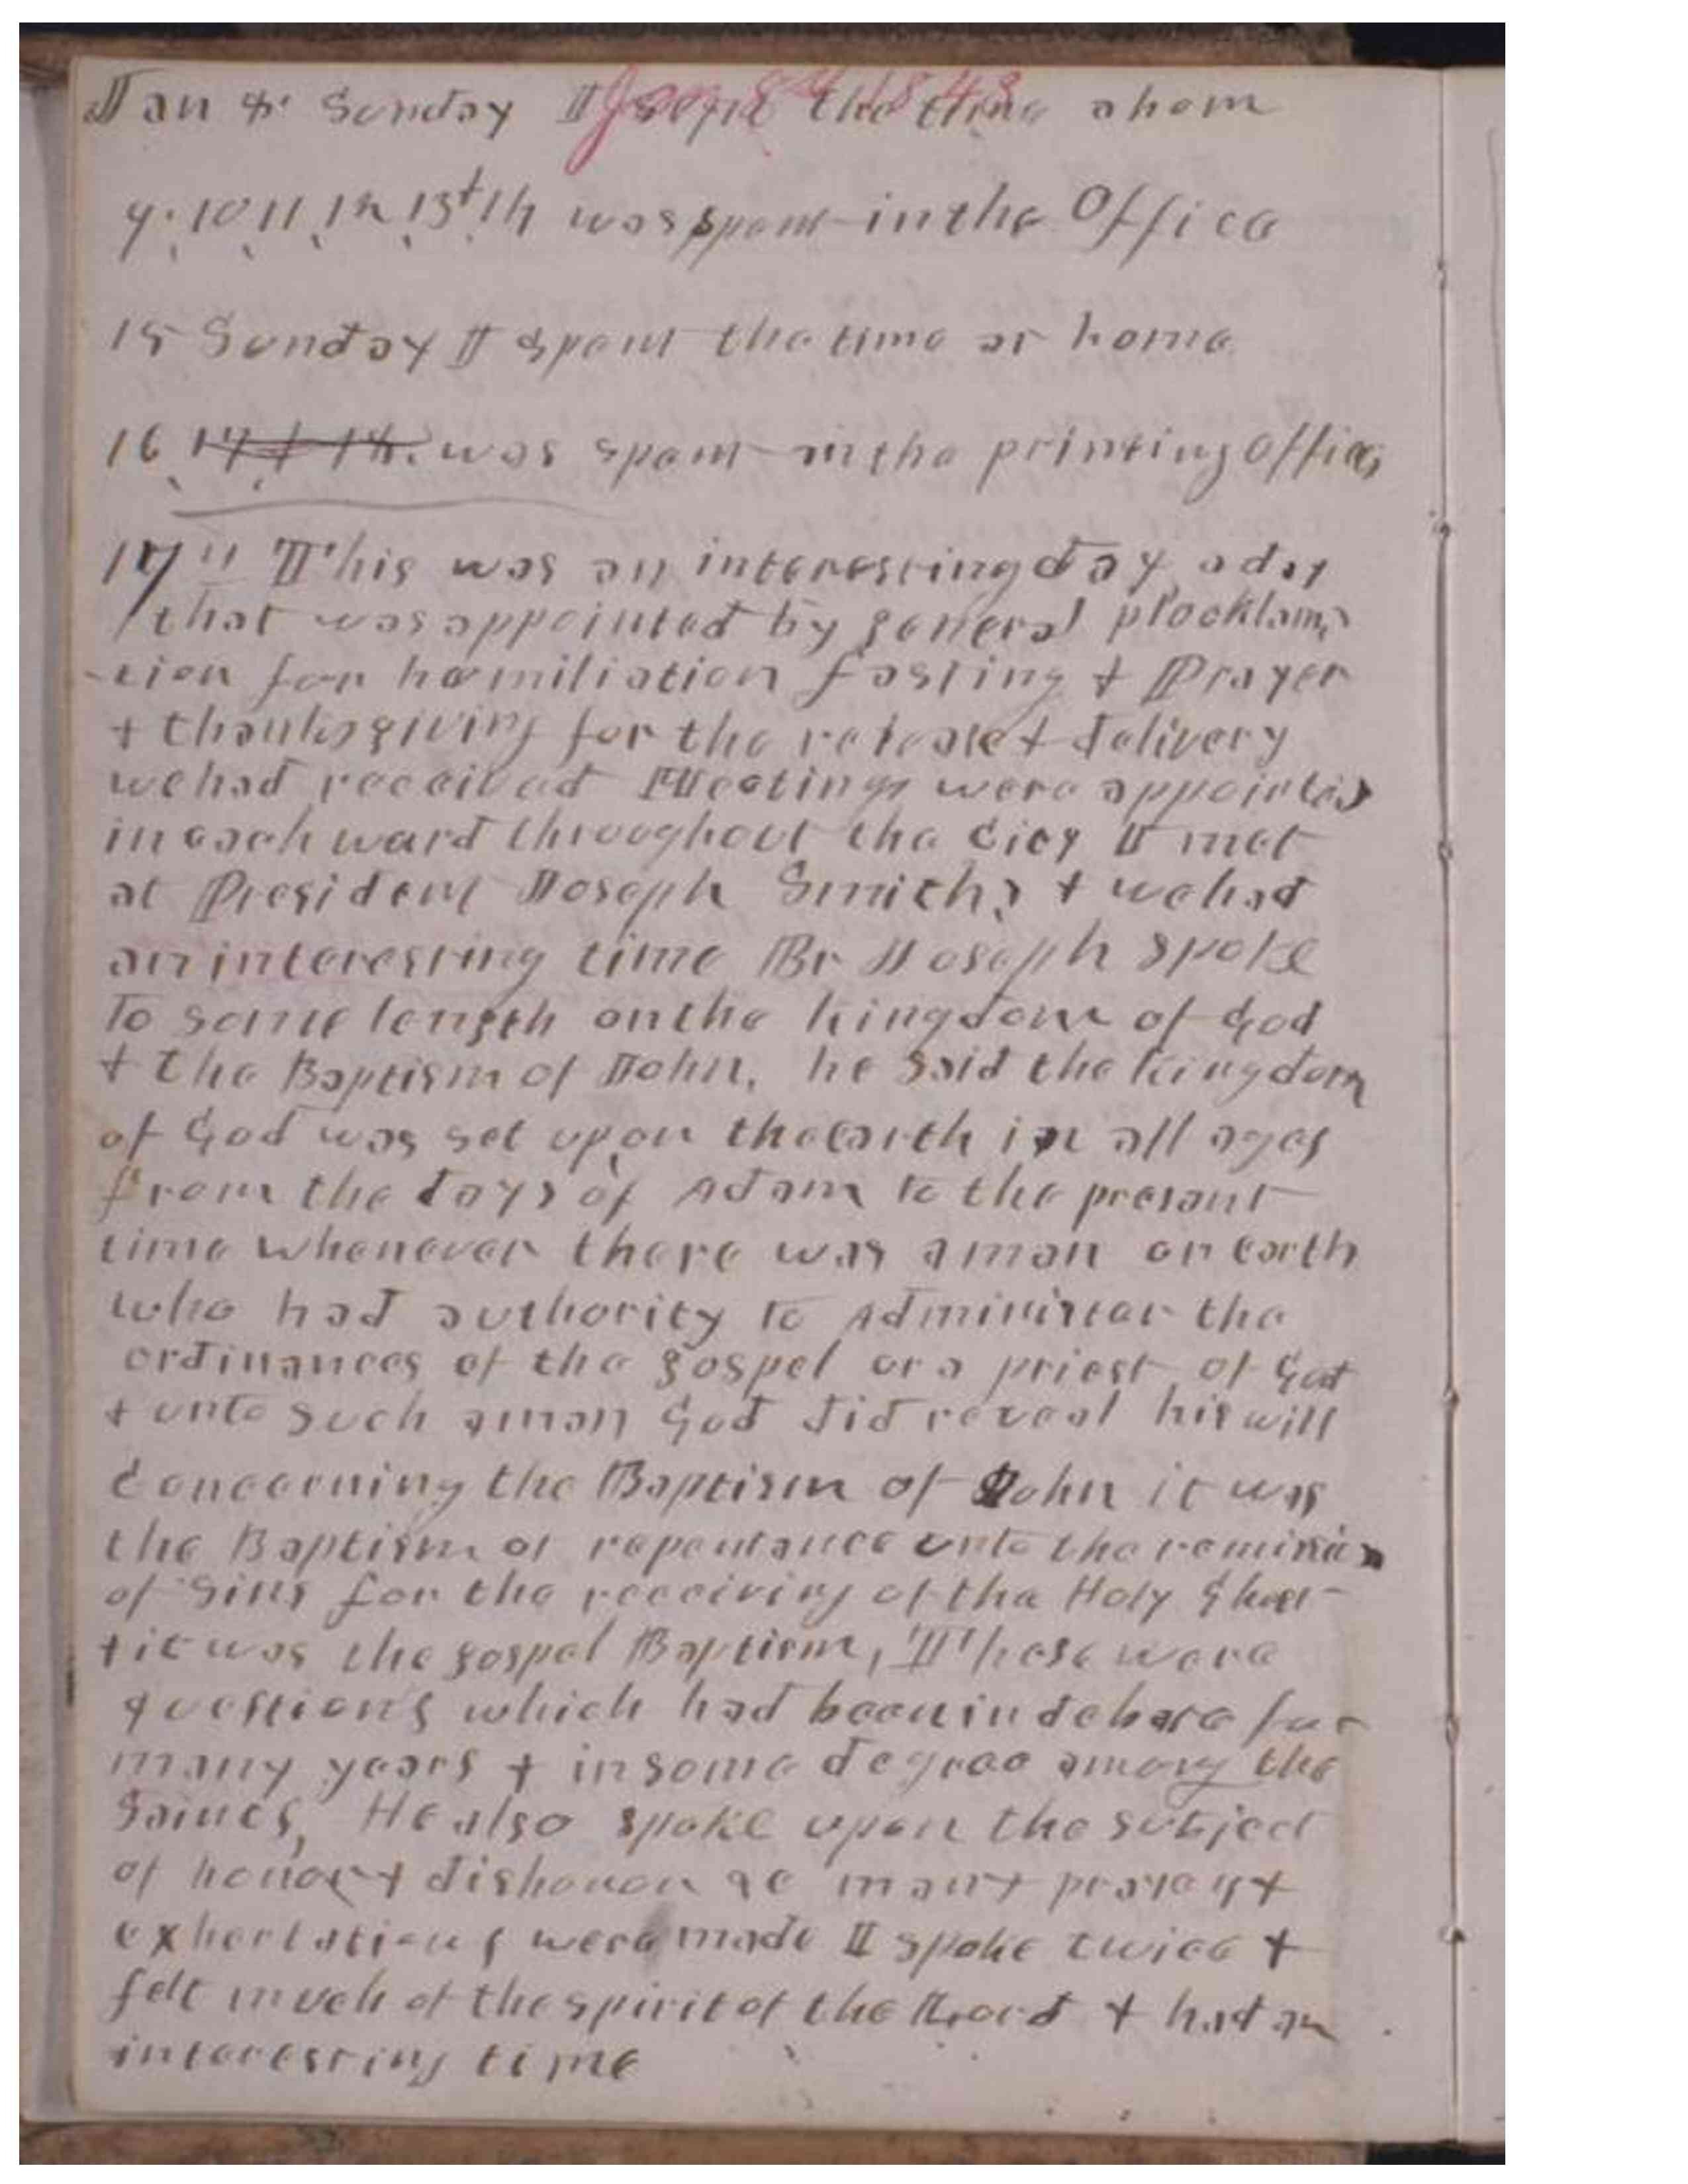 Jan 8th Sunday I spent the time a hom
Jan 8th 1843
9. 10, 11, 12, 13, + 14 was spent in the Office
15 Sunday I spent the time at home
16, 17 + 18. was spent in the printing Office,
17th This was an interesting day, a day
that was appointed by general procklama
-tion for humiliation fasting + Prayer
+ thanksgiving for the release + delivery
we had received Meetings were appointed
in each ward throughout the City I met
at President Joseph Smiths + we had
an interesting time Br Joseph spoke
to some length on the kingdom of God
+ the Baptism of John, he said the kingdom
of God was set upon the earth in all ages
from the days of Adam to the present
time whenever there was a man on earth
who had authority to Administer the
ordinances of the gospel or a priest of God
+ unto such a man God did reveal his will
Concerning the Baptism of John it was
the Baptism of repentance unto the remision
of Sins for the receiving of the Holy Ghost
+ it was the gospel Baptism, These were
questions which had been in debate for
many years + in some degree among the
Saints, He also spoke upon the subject
of honor + dishonor &c many prayers +
exhortations were made I spoke twice +
felt much of the spirit of the Lord + had an
interesting time